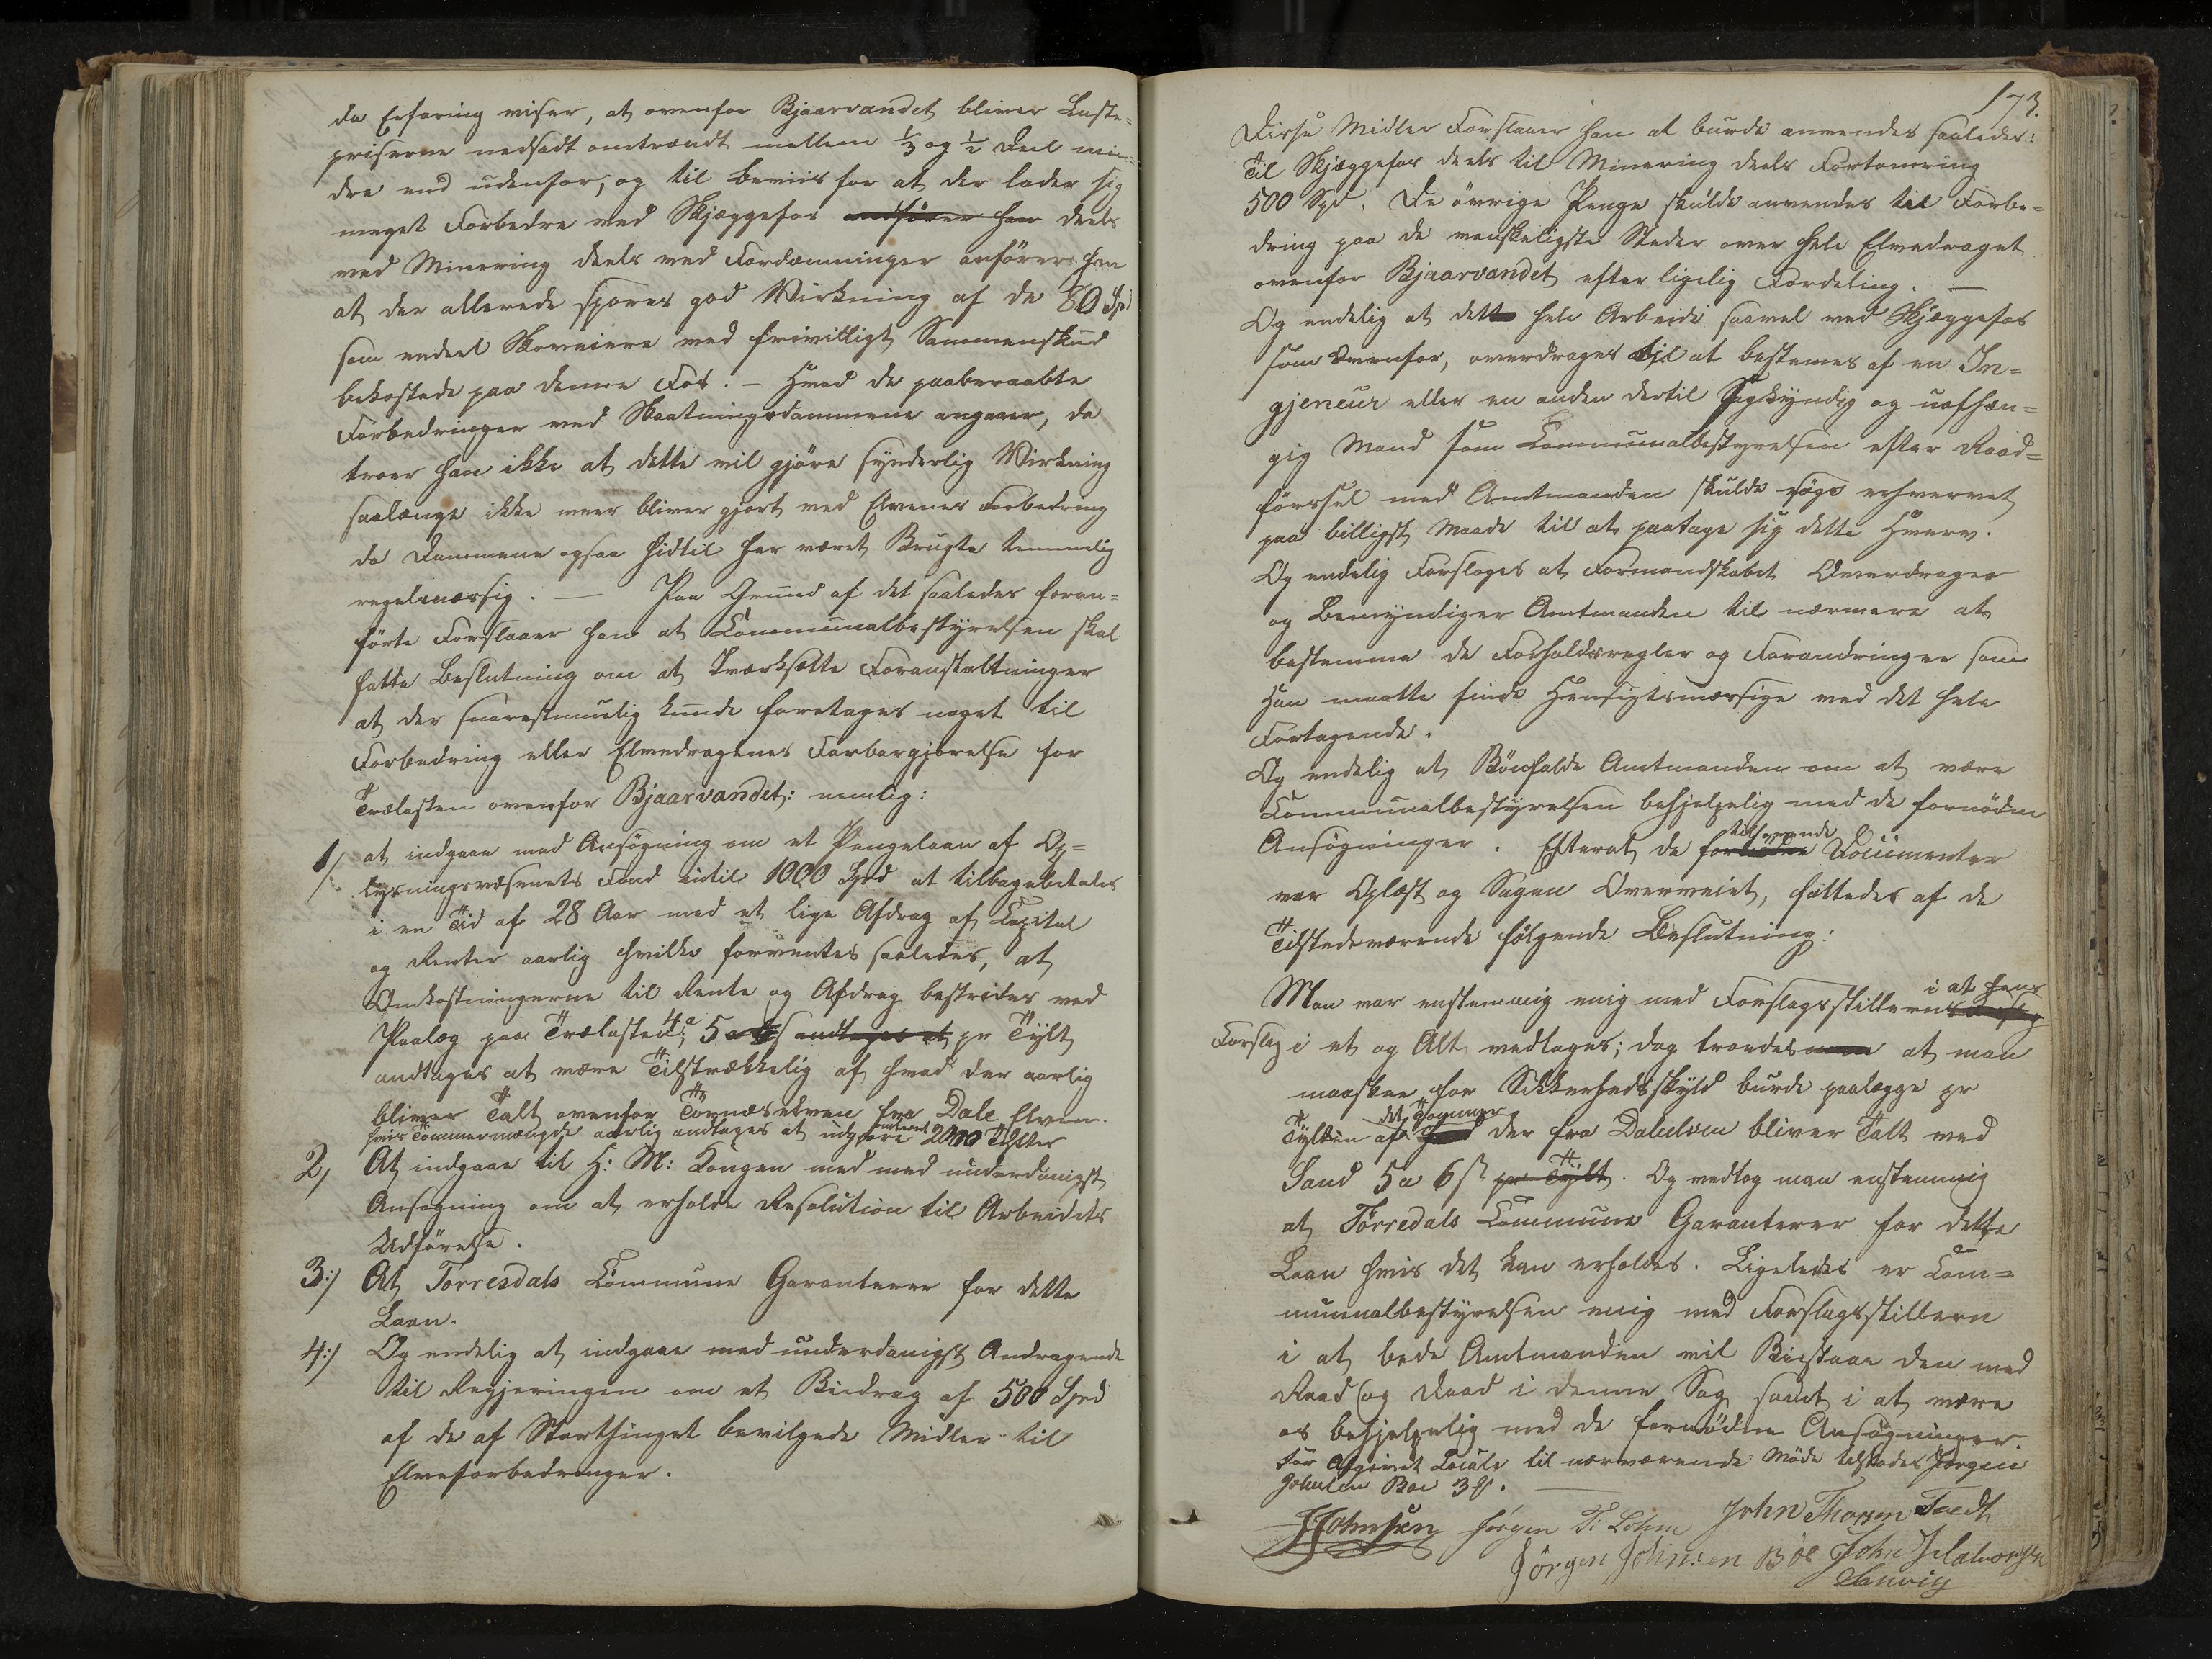 da Erfaring viser, at ovenfor Bjaarvandet bliver Laste=
priserne nedsadt omtrændt mellem 1/3 og 1/2 Deel min=
dre end udenfor; og til beviis for at der lader sig
meget Forbedre med Skjæggefos andförer han deels
ved Minering deels ved Fordæmninger anförer han
at der allerede spores god Virkning af de 80 Spd
som endeel Skoveiere med frivilligt Sammenskud
bekostede paa denne Fos. – Hvad de paaberaabte
Forbedringer med Vaatningsdammene angaaer, da
troer han ikke at dette vil gjöre synderlig Virkning
saalænge ikke meer bliver gjort ved Elvenes Forbedring
da Dammene ogsaa hidtil har været Brugte temmelig
regelmæssig. — Paa Grund af det saaledes foran=
förte Forslaaer han at Communalbestyrelsen skal
fatte Beslutning om at Iværksætte Foranstaltninger
at der snarestmuelig kunde foretages noget til
Forbedring eller Elvedragenes Farbargjörelse for
Trælasten ovenfor Bjaarvandet: nemlig:
1/ at indgaae med Ansögning om et Pengelaan af Op=
lysningsvæsenets Fond indtil 1000 Spd at tilbagebetales
i en Tid af 28 Aar med et lige Afdrag af Capital
og Renter aarlig hvilke forrentes saaledes, at
Omkostningerne til Rente og Afdrag bestrides ved
Paalæg paa Trælasten 4 a 5 a 6 s andtages at pr Tylt
andtages at være Tilstrækkelig af hvad der aarlig
bliver Talt ovenfor Tovnæselven fra Dale Elven.
hvis Tömmermængde aarlig andtages at udgjöre omtrent 2000 Tylter
2/ At indgaae til H: M: Kongen med med underdanigst
Ansögning om at erholde Resolution til Arbeidets
Udförelse.
3:/ At Torresdals Commune Garanterer for dette
Laan.
4:/ Og endelig at indgaae med underdanigst Andragende
til Regjeringen om et Bidrag af 500 Spd
af de af Storthinget bevilgede Midler til
Elveforbedringer.
173.
Disse Midler Forslaaer han at burde anvendes saaledes:
Til Skjæggefos deels til Minering deels Fortomring
500 Spd. De övrige Penge skulde anvendes til Forbe=
dring paa de vanskeligste Steder over hele Elvedraget
ovenfor Bjaarvandet efter ligelig Fordeling. —
Og endelig at dette hele Arbeide saavel ved Skjæggefos
som Ovenfor, overdrages til at bestemes af en In=
gjeneur eller en anden dertil Sagkyndig og uafhæn=
gig Mand som Communalbestyrelsen efter Raad=
försel med Amtmanden skulde söge erhvervet
paa billigst Maade til at paatage sig dette Hverv.
Og endelig Forslages at Formandskabet Overdrager
og Bemyndiger Amtmanden til nærmere at
bestemme de Forholdsregler og Forandringer som
Han maatte finde Hensigtsmæssige ved det hele
Fortagende.
Og endelig at Bönfalde Amtmanden om at være
Communalbestyrelsen behjelpelig med de fornödne
Ansögninger. Efterat de tilhörende Documenter
var Oplæst og Sagen Overveiet, fattedes af de
Tilstedeværende fölgende Beslutning:
Man var enstemmig enig med Forslagsstilleren i at hans
Forslag i et og Alt vedtages; dog troedes man at man
maaskee for Sikkerheds skyld burde paalægge pr
Tylten af det Tömmer der fra Daleelven bliver Talt ved
Sand 5 a 6 s pr Tylt. Og vedtog man enstemmig
at Törredals Commune Garanterer for dette
Laan hvis det kan erholdes. Ligeledes er Com=
munalbestyrelsen enig med Forslagsstilleren
i at bede Amtmanden vil Bistaae den med
Raad og Daad i denne Sag samt i at være
os behjelpelig med de fornödne Ansögninger.
For Afgivet Locale til nærværende Möde tilstodes Jörgen
Johnsen Böe 3 s. —
JJohnsen Jörgen T: Lohne John Thorsen Tvedt
Jörgen Johnsen Böe John JHalvorsen
Sanvig